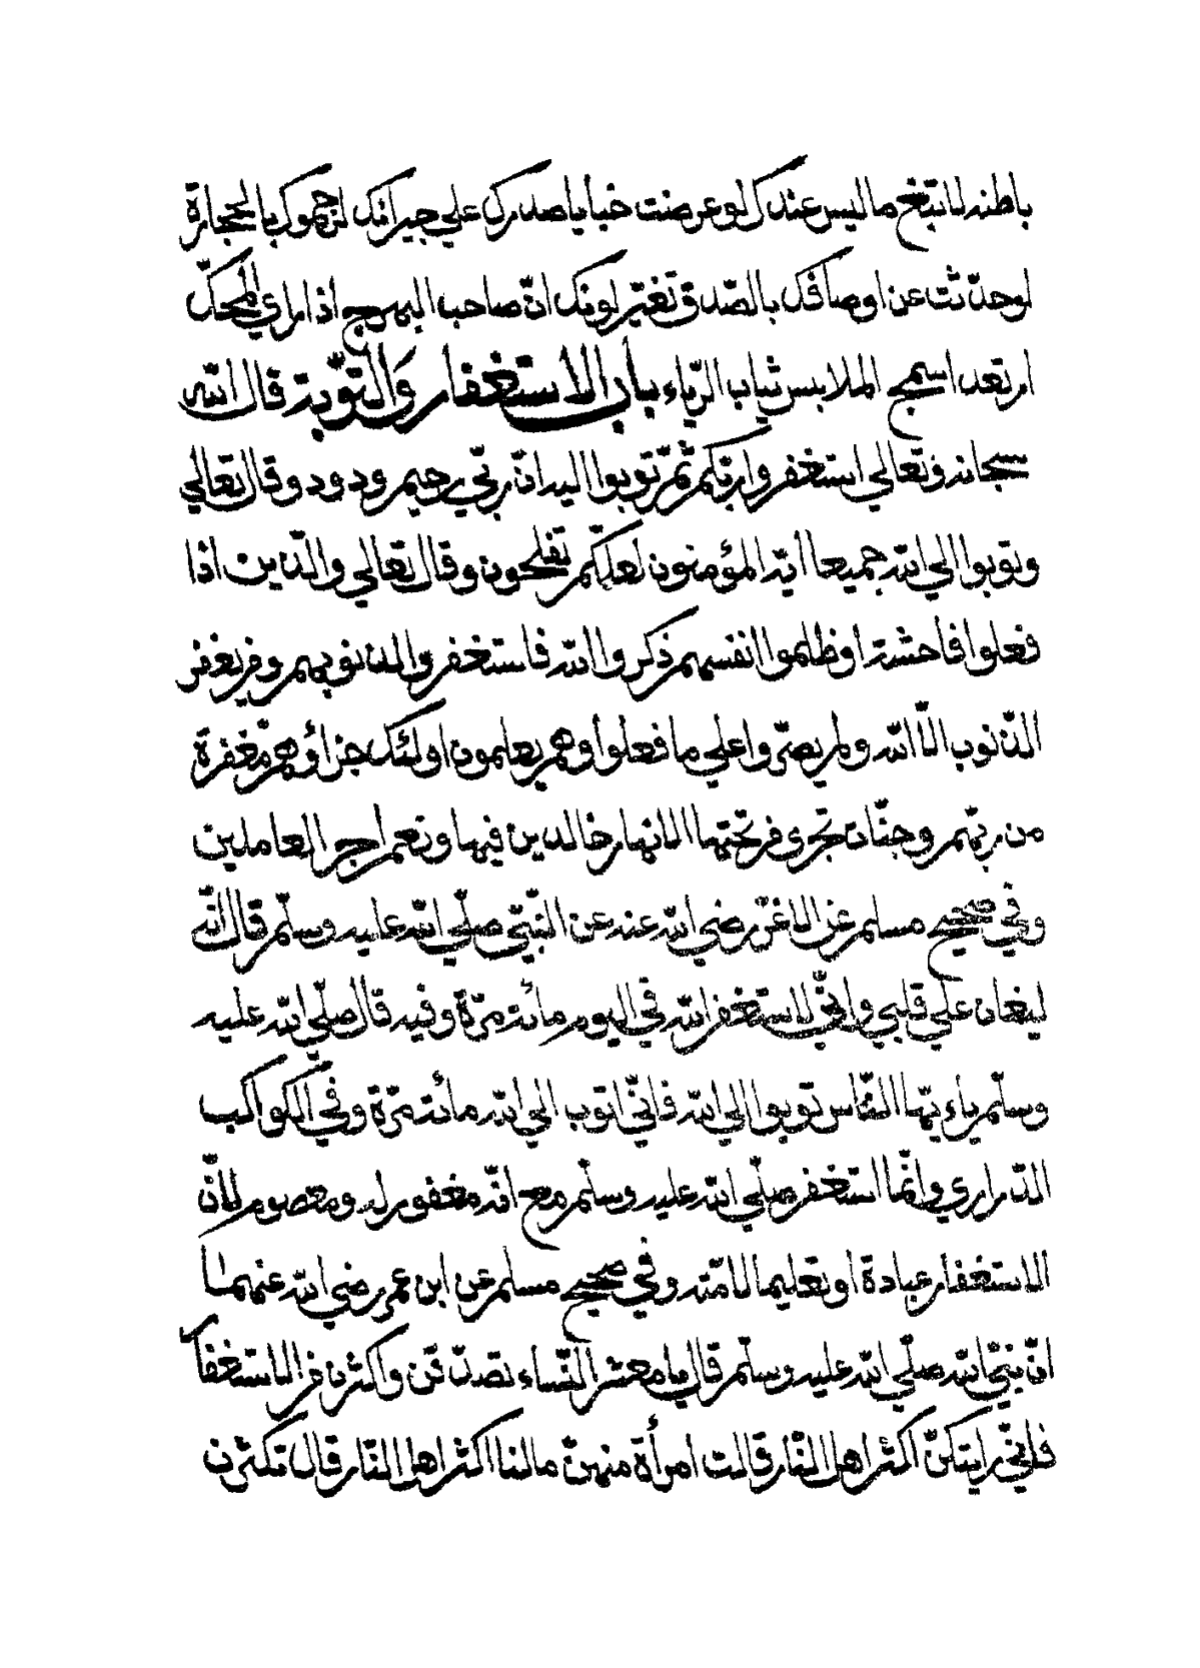 باطنه لا تبتغ ما ليس عندك لو عرضت خبايا صدرك علي جيرانك لرجموك بالحجارة
لو حدّثت عن اوصافك بالصّدق تغيّر لونك انّ صاحب البهرج اذا راي المحكّ
ارتعد اسمج الملابس ثياب الرّياء باب الاستغفار والتّوبة قال الله
سبحانه وتعالي استغفروا ربّكم ثمّ توبوا اليه انّ ربّي رحيم ودود وقال تعالي
وتوبوا الي الله جميعا ايّه المؤمنون لعلّكم تفلحون وقال تعالي والّذين اذا
فعلوا فاحشة او ظلموا انفسهم ذكروا الله فاستغفروا لذنوبهم ومن يغفر
الذّنوب الّا الله ولم يصرّوا علي ما فعلوا وهم يعلمون اولئك جزاؤهم مّغفرة
من ربّهم وجنّات تجرى من تحتها الانهار خالدين فيها ونعم اجر العاملين
وفي صحيح مسلم عن الاغرّ رضي الله عنه عن النّبيّ صلّي الله عليه وسلّم قال انّه
ليغان علي قلبي وانّي لاستغفر الله في اليوم مائة مرّة وفيه قال صلّي الله عليه
وسلّم ياءيّها النّاس توبوا الي الله فانّي اتوب الي الله مائة مرّة وفي الكواكب
الدّراري وانّما استغفر صلّي الله عليه وسلّم مع انّه مغفور له ومعصوم لانّ
الاستغفار عبادة او تعليما لامّته وفي صحيح مسلم عن ابن عمر رضي الله عنهما
انّ نبيّ الله صلّي الله عليه وسلّم قال يا معشر النّساء تصدّقن واكثرن من الاستغفار
فانّي رايتكنّ اكثر اهل النّار قالت امرأة منهنّ ما لنا اكثر اهل النّار قال تكثرن